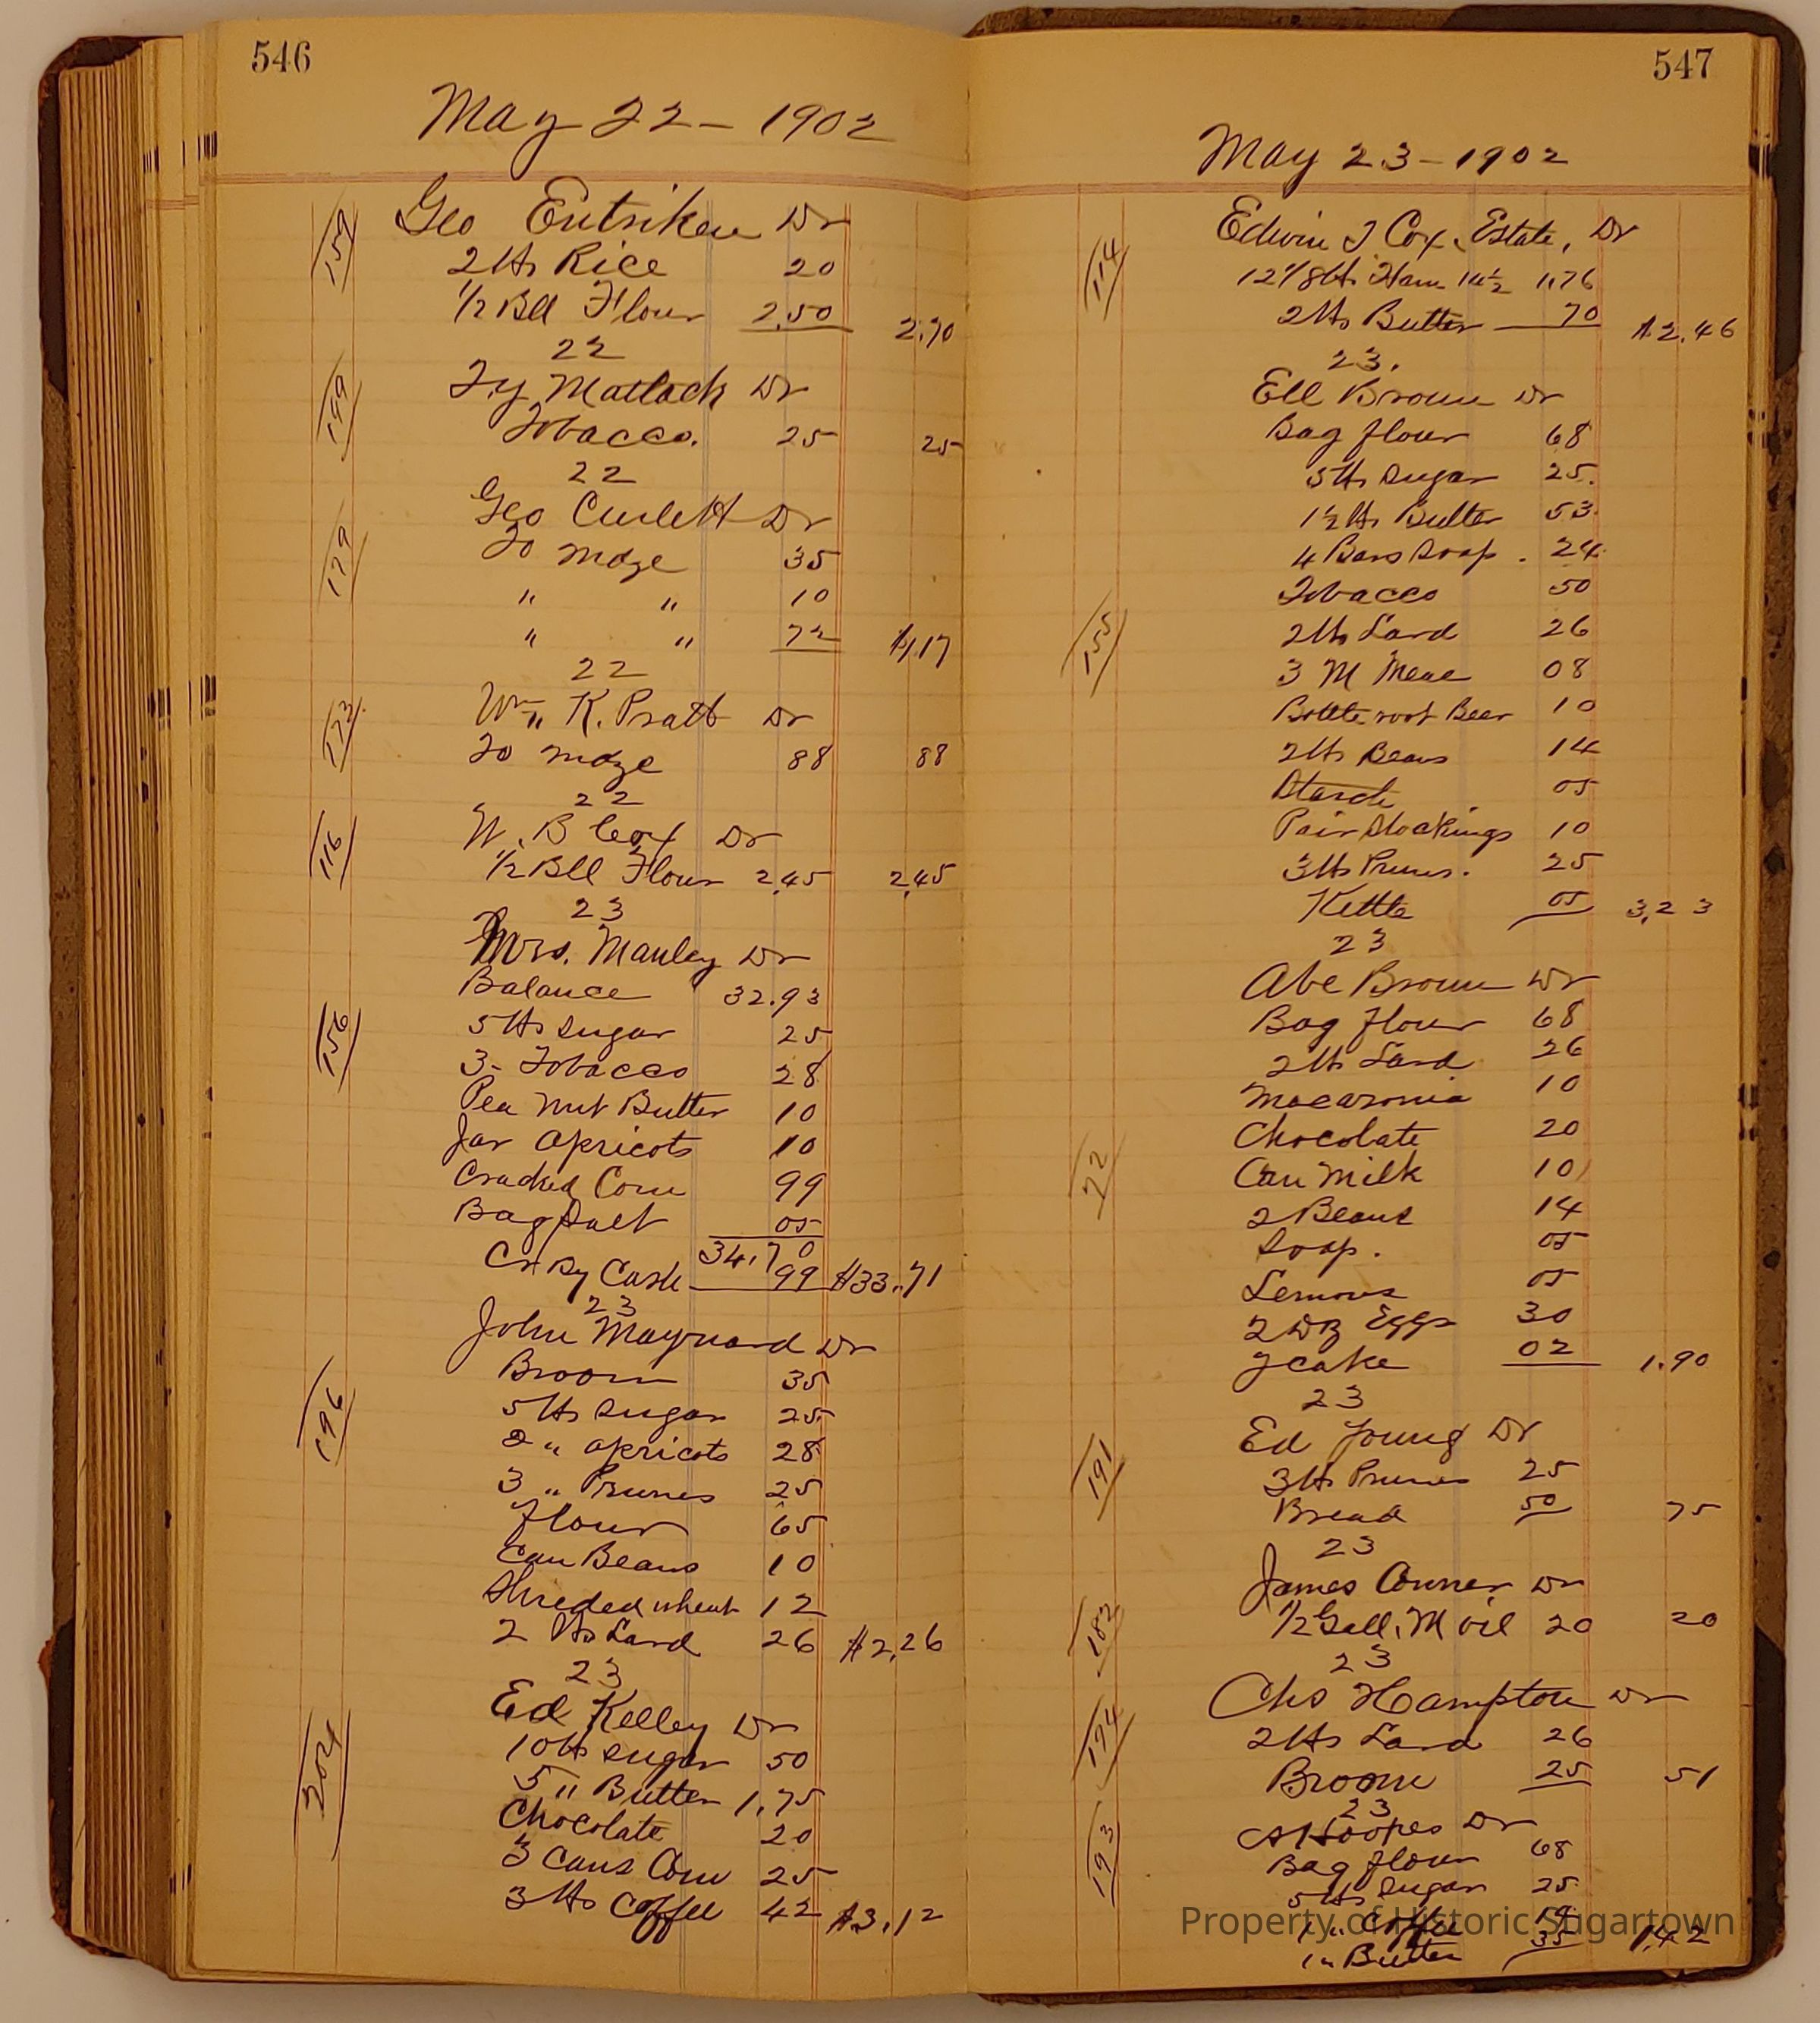 546
May 22 - 1902
159
Geo Entriken Dr
2 lbs Rice 20
1/2 Bll Flour 2.50 2.70
22
199
Ty Matlack Dr
Tobacco. 25 25
22
179
Geo Curlett Dr
To mdze 35
" " 10
" " 72 $1.17
22
173
Wm K. Pratt Dr
To mdze 88 88
22
116
W. B Cox Dr
1/2 Bll Flour 2.45 2.45
23
Mrs. Manley Dr
Balance 32.93
156
5 lbs Sugar 25
3 - Tobacco 28
Pea nut Butter 10
Jar Apricots 10
Cracked Corn 99
Bag Salt 05
34.70
Cr By Cash 99 $33.71
23
John Maynard Dr
Broom 35
196
5 lbs Sugar 25
2 " Apricots 28
3 " Prunes 25
Flour 65
Can Beans 10
Shreded wheat 12
2 lbs Lard 26 $2.26
23
Ed Kelley Dr
204
10 lbs Sugar 50
5 " Butter 1.75
Chocolate 20
3 Cans Corn 25
3 lbs Coffee 42 $3.12
547
May 23 - 1902
114
Edwin J Cox, Estate, Dr
12 1/8 lbs Ham 14 1/2 1.76
2 lbs Butter 70 $2.46
23.
Ell Brown Dr
Bag flour 68
5 lbs Sugar 25.
1 1/2 lbs Butter 53
4 Bars Soap . 24
Tobacco 50
155
2 lbs Lard 26
3 M 08
Bottle root Beer 10
2 lbs Beans 14
Starch 05
Pair Stockings 10
3 lbs Prunes. 25
Kettle 05 3.23
23
Abe Brown Dr
Bag flour 68
2 lb Lard 26
Macaronia 10
Chocolate 20
22
Can Milk 10
2 Beans 14
Soap. 05
Lemons 05
2 Dz Eggs 30
Y cake 02 1.90
23
191
Ed Young Dr
3 lbs Prunes 25
Bread 50 75
23
182
James Conner Dr
1/2 Gall. M oil 20 20
23
194
Chs Hampton Dr
2 lbs Lard 26
Broom 25 51
23
193
Hoopes Dr
Bag flour 68
5 lbs Sugar 25
1 " Coffee 14
1 " Butter 35 1.42
Property of Historic Sugartown